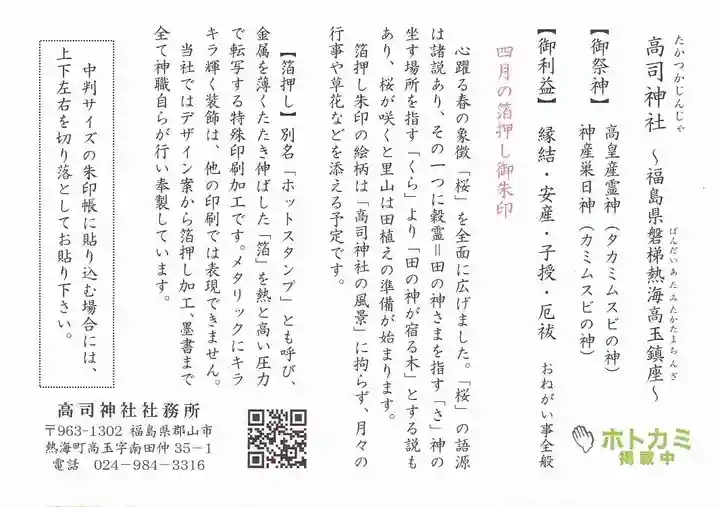 たかつかじんじゃ
高司神社 ～福島県磐梯熱海高玉鎮座～
ばんだいあたみたかたまちんざ
【御祭神】 高皇産霊神（タカミムスビの神）
神産巣日神（カミムスビの神）
【御利益】 縁結・安産・子授・厄祓 おねがい事全般
四月の箔押し御朱印
心躍る春の象徴「桜」を全面に広げました。「桜」の語源
は諸説あり、その一つに穀霊＝田の神さまを指す「さ」神の
坐す場所を指す「くら」より「田の神が宿る木」とする説も
あり、桜が咲くと里山は田植えの準備が始まります。
箔押し朱印の絵柄は「高司神社の風景」に拘らず、月々の
行事や草花などを添える予定です。
【箔押し】別名「ホットスタンプ」とも呼び、
金属を薄くたたき伸ばした「箔」を熱と高い圧力
で転写する特殊印刷加工です。メタリックにキラ
キラ輝く装飾は、他の印刷では表現できません。
当社ではデザイン案から箔押し加工、墨書まで
全て神職自らが行い奉製しています。
中判サイズの朱印帳に貼り込む場合には、
上下左右を切り落としてお貼り下さい。
高司神社社務所
〒963-1302 福島県郡山市
熱海町高玉字南田仲 35－1
電話 024－984－3316
ホトカミ
掲載中